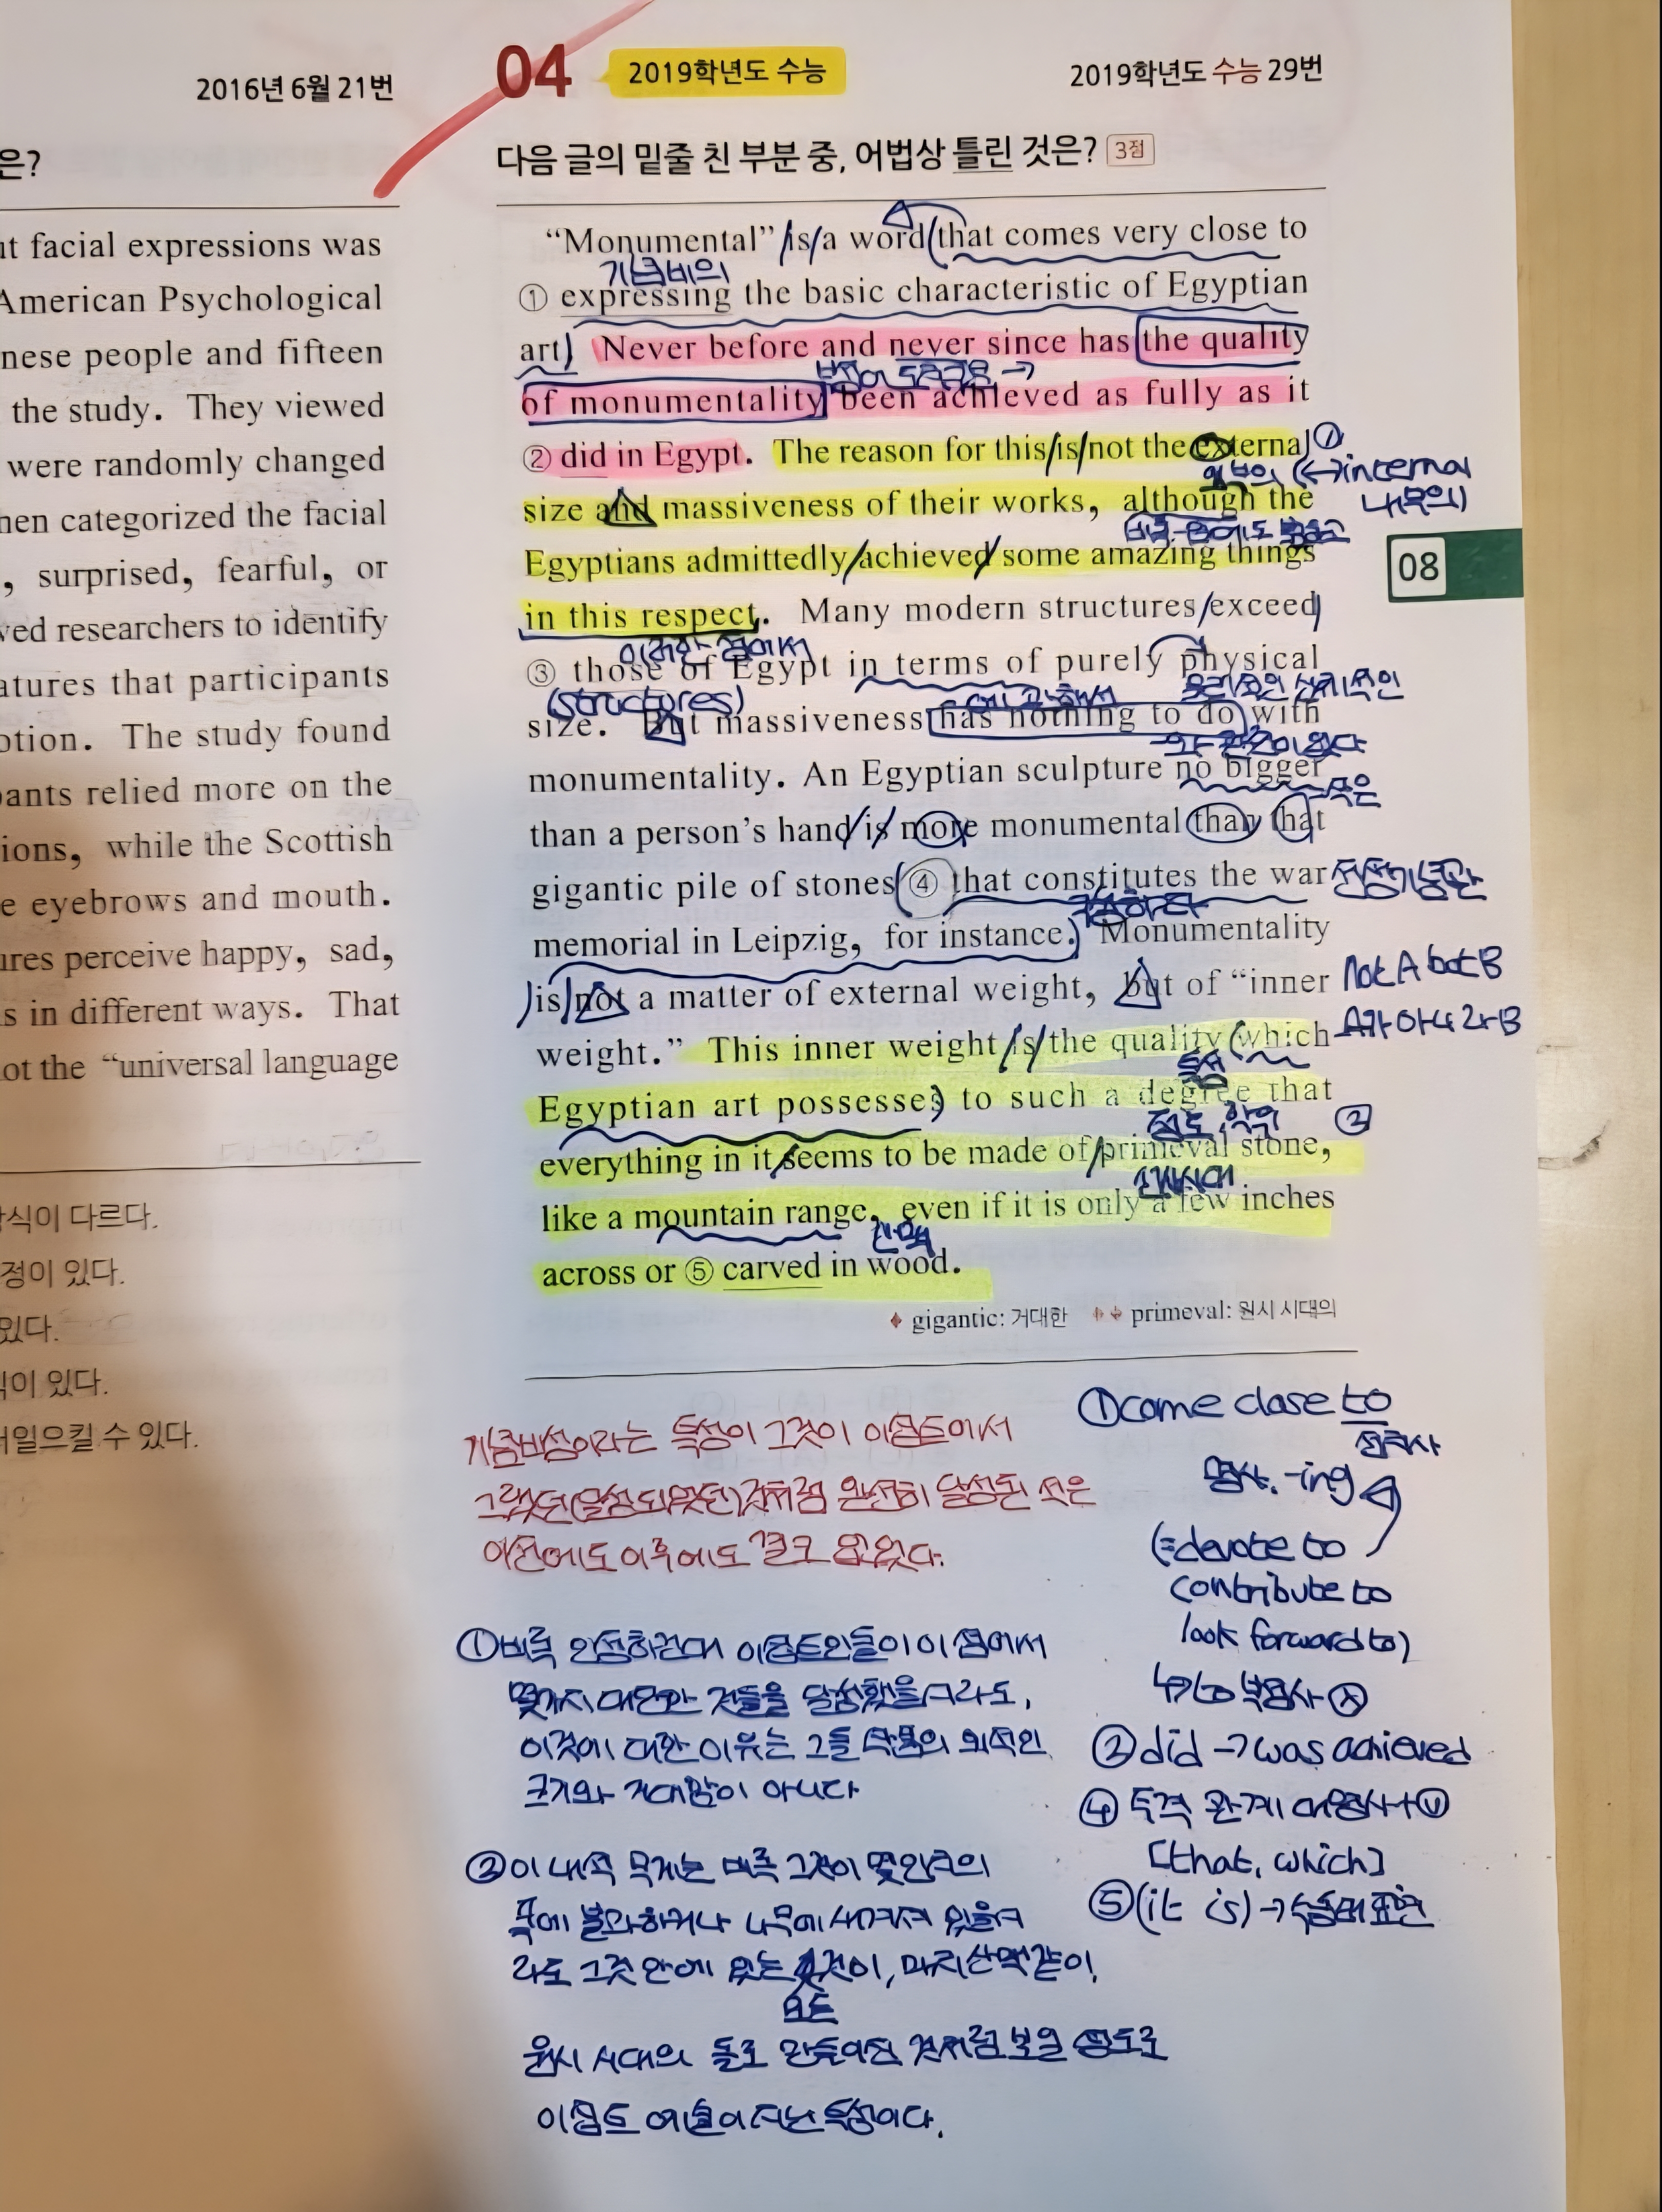 2016년 6월 21번
은?
ut facial expressions was
American Psychological
nese people and fifteen
the study. They viewed
were randomly changed
hen categorized the facial
, surprised, fearful, or
ved researchers to identify
atures that participants
otion. The study found
pants relied more on the
ions, while the Scottish
e eyebrows and mouth.
ures perceive happy, sad,
s in different ways. That
ot the “universal language
식이 다르다.
정이 있다.
있다.
이 있다.
일으킬 수 있다.
04 2019학년도 수능
2019학년도 수능 29번
다음 글의 밑줄 친 부분 중, 어법상 틀린 것은? 3점
“Monumental” is a word that comes very close to
기념비의
① expressing the basic characteristic of Egyptian
art. Never before and never since has the quality
of monumentality been achieved as fully as it
② did in Egypt. The reason for this is not the external ①
외부의 (↔internal
내부의)
size and massiveness of their works, although the
비록 -음에도 불구하고
Egyptians admittedly achieved some amazing things
in this respect. Many modern structures exceed
이러한 점에서
③ those of Egypt in terms of purely physical
(structures)
에 관해서
size. But massiveness has nothing to do with
와 관련이 없다
monumentality. An Egyptian sculpture no bigger
작은
than a person’s hand is more monumental than that
gigantic pile of stones ④ that constitutes the war 전쟁기념관
구성하다
memorial in Leipzig, for instance. Monumentality
is not a matter of external weight, but of “inner Not A but B
A가 아니라 B
weight.” This inner weight is the quality which
특성
Egyptian art possesses to such a degree that
정도, ②
everything in it seems to be made of primeval stone,
원시시대
like a mountain range, even if it is only a few inches
산맥
across or ⑤ carved in wood.
gigantic: 거대한 primeval: 원시 시대의
08
기념비성이라는 특성이 그것이 이집트에서
그랬던(달성되었던)것처럼 완전히 달성된 적은
이전에도 이후에도 결코 없었다.
①비록 인정하건대 이집트인들이 이 점에서
몇가지 대단한 것들을 달성했을지라도,
이것에 대한 이유는 그들 작품의 외적인
크기와 거대함이 아니다
②이 내적 무게는 비록 그것이 몇인치의
폭에 불과하거나 나무에 새겨져 있을지
라도 그것 안에 있는 것이, 마치 산맥같이,
모든
원시 시대의 돌로 만들어진 것처럼 보일 정도로
이집트 예술이 지닌 특성이다.
①come close to
전치사
명사, -ing
(=devote to
contribute to
look forward to)
↳to 부정사 ⓧ
②did → was achieved
④ 주격 관계 대명사+ⓥ
[that, which]
⑤(it is) → 수동태 표현